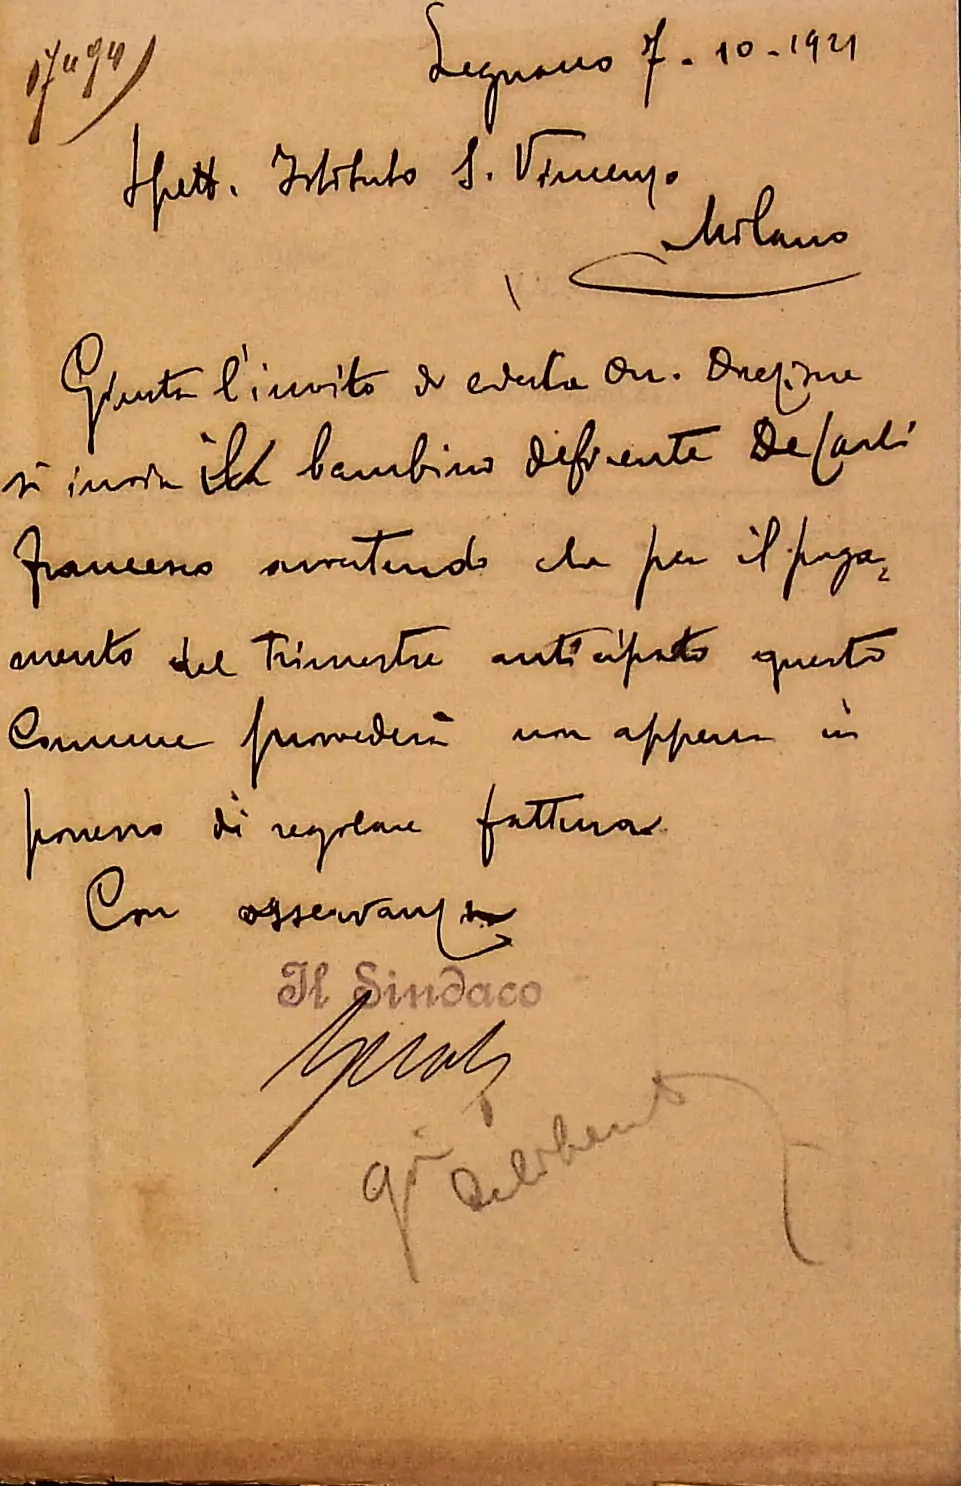 Legnano 7-10-1921
Spett. Istituto S. Vincenzo
Milano
Giusta l'invito di codesta On. Direzione
si invia il bambino deficiente De Carli
Francesco avvertendo che per il paga-
mento del trimestre anticipato questo
Comune provvederà non appena in
possesso di regolare fattura
Con osservanza
Il Sindaco
già deliberato